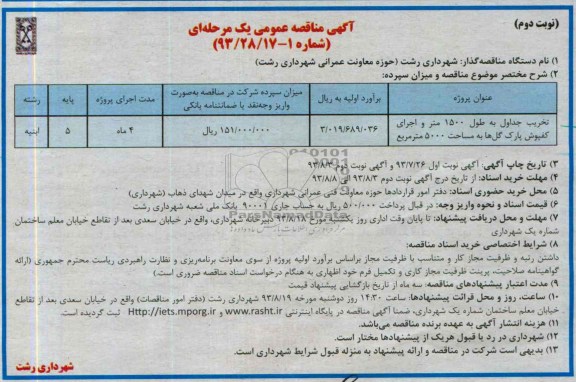 (نوبت دوم)
آگهی مناقصه عمومی یک مرحله‌ای
(شماره ۱-۹۳/۲۸/۱۷)
۱) نام دستگاه مناقصه‌گذار: شهرداری رشت (حوزه معاونت عمرانی شهرداری رشت)
۲) شرح مختصر موضوع مناقصه و میزان سپرده:
عنوان پروژه
برآورد اولیه به ریال
میزان سپرده شرکت در مناقصه به‌صورت واریز وجه‌نقد یا ضمانتنامه بانکی
مدت اجرای پروژه
پایه
رشته
تخریب جداول به طول ۱۵۰۰ متر و اجرای کفپوش پارک گل‌ها به مساحت ۵۰۰۰ مترمربع
۳/۰۱۹/۶۸۹/۰۳۶
۱۵۱/۰۰۰/۰۰۰ ریال
۴ ماه
۵
ابنیه
۳) تاریخ چاپ آگهی: آگهی نوبت اول ۹۳/۷/۲۶ و آگهی نوبت دوم ۹۳/۸/۳
۴) مهلت خرید اسناد: از تاریخ درج آگهی نوبت دوم ۹۳/۸/۳ الی ۹۳/۸/۸
۵) محل خرید حضوری اسناد: دفتر امور قراردادها حوزه معاونت فنی عمرانی شهرداری واقع در میدان شهدای ذهاب (شهرداری)
۶) قیمت اسناد و نحوه واریز وجه: در قبال پرداخت ۵۰۰/۰۰۰ ریال به حساب جاری ۹۰۰۰۱ بانک ملی شعبه شهرداری رشت
۷) مهلت و محل دریافت پیشنهاد: تا پایان وقت اداری روز یکشنبه مورخ ۹۳/۸/۱۸ دبیرخانه شهرداری، واقع در خیابان سعدی بعد از تقاطع خیابان معلم ساختمان
شماره یک شهرداری
۸) شرایط اختصاصی خرید اسناد مناقصه:
داشتن رتبه و ظرفیت مجاز کار و متناسب با ظرفیت مجاز براساس برآورد اولیه پروژه از سوی معاونت برنامه‌ریزی و نظارت راهبردی ریاست محترم جمهوری (ارائه
گواهینامه صلاحیت، پرینت ظرفیت مجاز کاری و تکمیل فرم خود اظهاری به هنگام درخواست اسناد مناقصه ضروری است.)
۹) مدت اعتبار پیشنهادهای مناقصه: سه ماه از تاریخ بازگشایی پیشنهاد قیمت
۱۰) ساعت، روز و محل قرائت پیشنهادها: ساعت ۱۴:۳۰ روز دوشنبه مورخه ۹۳/۸/۱۹ شهرداری رشت (دفتر امور مناقصات) واقع در خیابان سعدی بعد از تقاطع
خیابان معلم ساختمان شماره یک شهرداری، ضمنا آگهی مناقصه در پایگاه اینترنتی www.rasht.ir و Http://iets.mporg.ir ثبت گردیده است.
۱۱) هزینه انتشار آگهی به عهده برنده مناقصه می‌باشد.
۱۲) شهرداری در رد یا قبول هریک از پیشنهادها مختار است.
۱۳) بدیهی است شرکت در مناقصه و ارائه پیشنهاد به منزله قبول شرایط شهرداری است.
شهرداری رشت